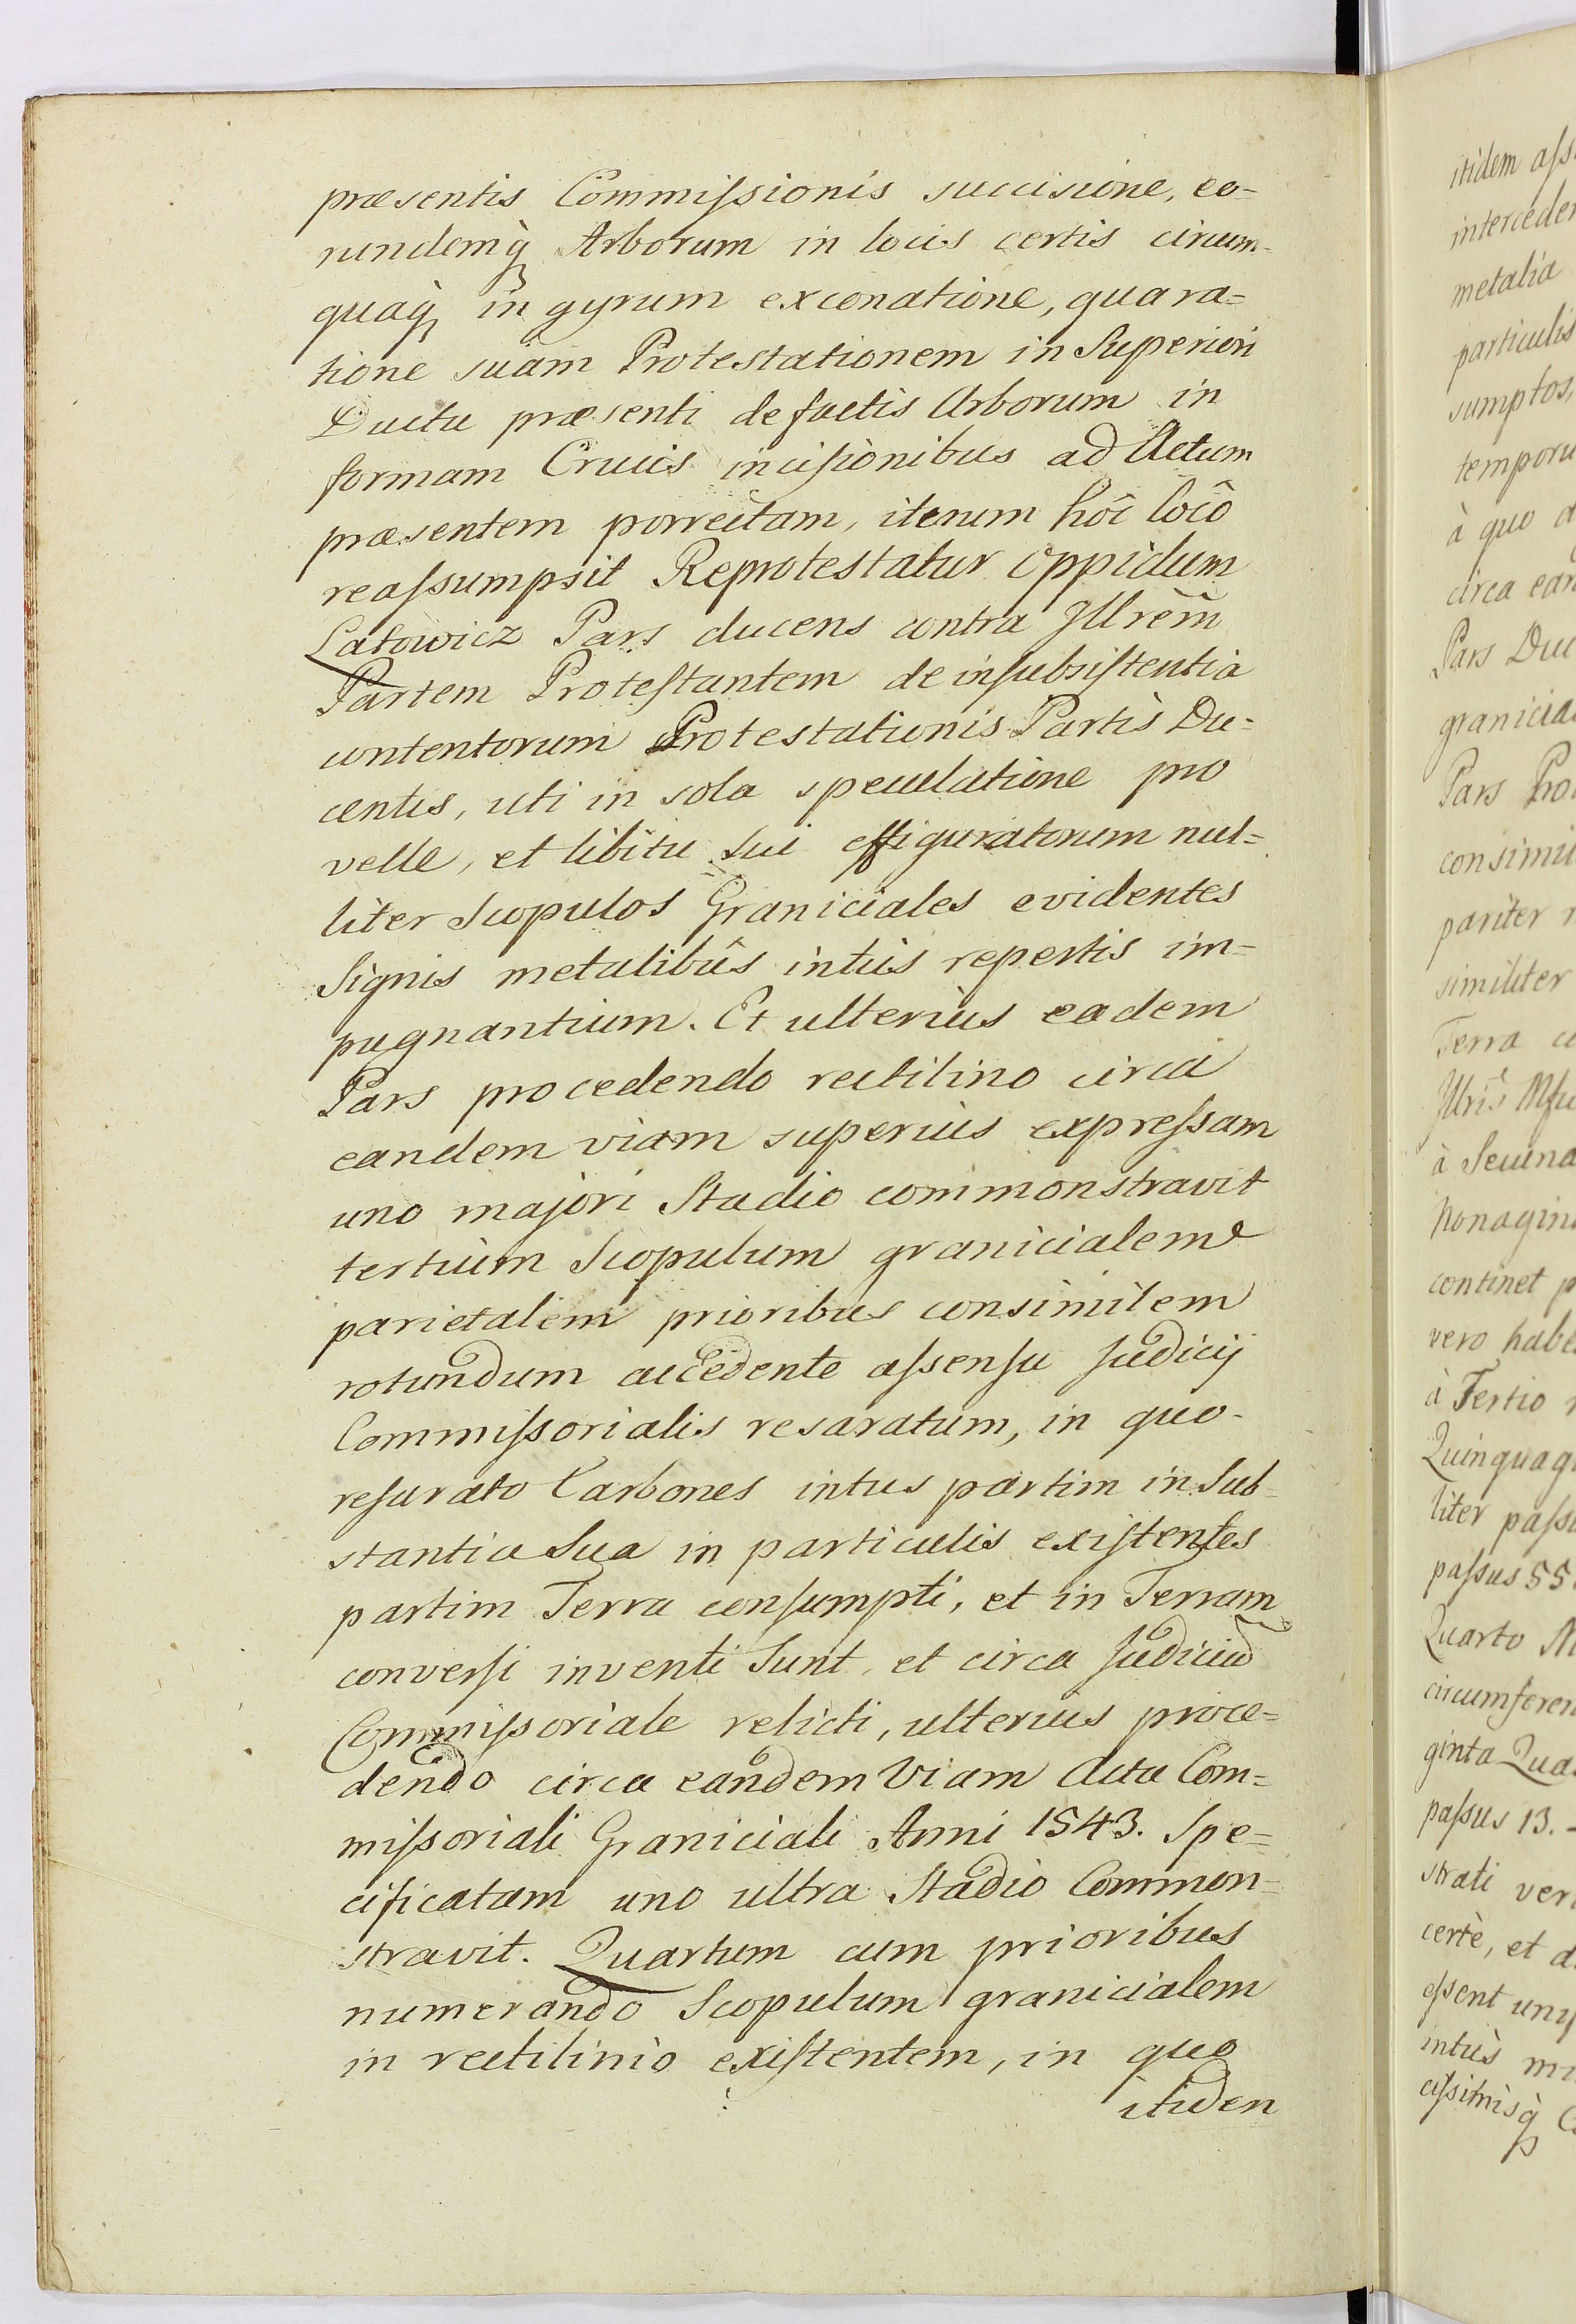 præsentis Commiſsionis succisione, eo=
rundemq̀ Arborum in locis certis circum-
quaq̀ in gyrum exconatione, qua ra=
tione suam Protestationem in Superiori
Ductu præsenti de factis Arborum in
formam Crucis incisionibus ad Actum
præsentem porrectam, iterum hôc locô
reaſsumpsit Reprotestatur Oppidum
Latowicz Pars ducens contra Jllrem̃
Partem Proteſtantem de inſubsiſtentia
contentorum Protestationis Partis Du=
centis, uti in sola speculatione pro
velle, et libitu sui effiguratorum nul=
liter Scopulos Graniciales evidentes
Signis metalibûs intùs repertis im=
pugnantium. Et ulterius eadem
Pars procedendo rectilino circa
eandem viam superius expreſsam
uno majori Stadio commonstravit
tertium Scopulum granicialem
parietalem prioribus consimilem
rotundum accedente aſsenſu Judicij
Commiſsorialis resaratum, in quo
reſarato Carbones intus partim in Sub=
stantia Sua in particulis exiſtentes
partim Terra conſumpti, et in Terram
converſi inventi Sunt, et circa Judiciũ
Commiſsoriale relicti, ulterius proce=
dendo circa eandem Viam Actu Com=
miſsoriali Graniciali Anni 1543. Spe=
cificatam uno ultra Stadio Common=
stravit. Quartum cum prioribus
numerando Scopulum granicialem
in rectilinio exiſtentem, in quo
itiden
itidem aſs
interceden
metalia
particulis
sumptos,
temporu
à quo
circa ean
Pars Duc
granicia
Pars Pro
consimi
pariter
similiter
Terra
Jllris
à Secund
Nonagin
continet
vero habe
à Tertio
Quinquag
liter paſs
paſsus 55.
Quarto
circumferen
ginta Qua
paſsus 13. -
strati ver
certè, et
eſsent
intùs